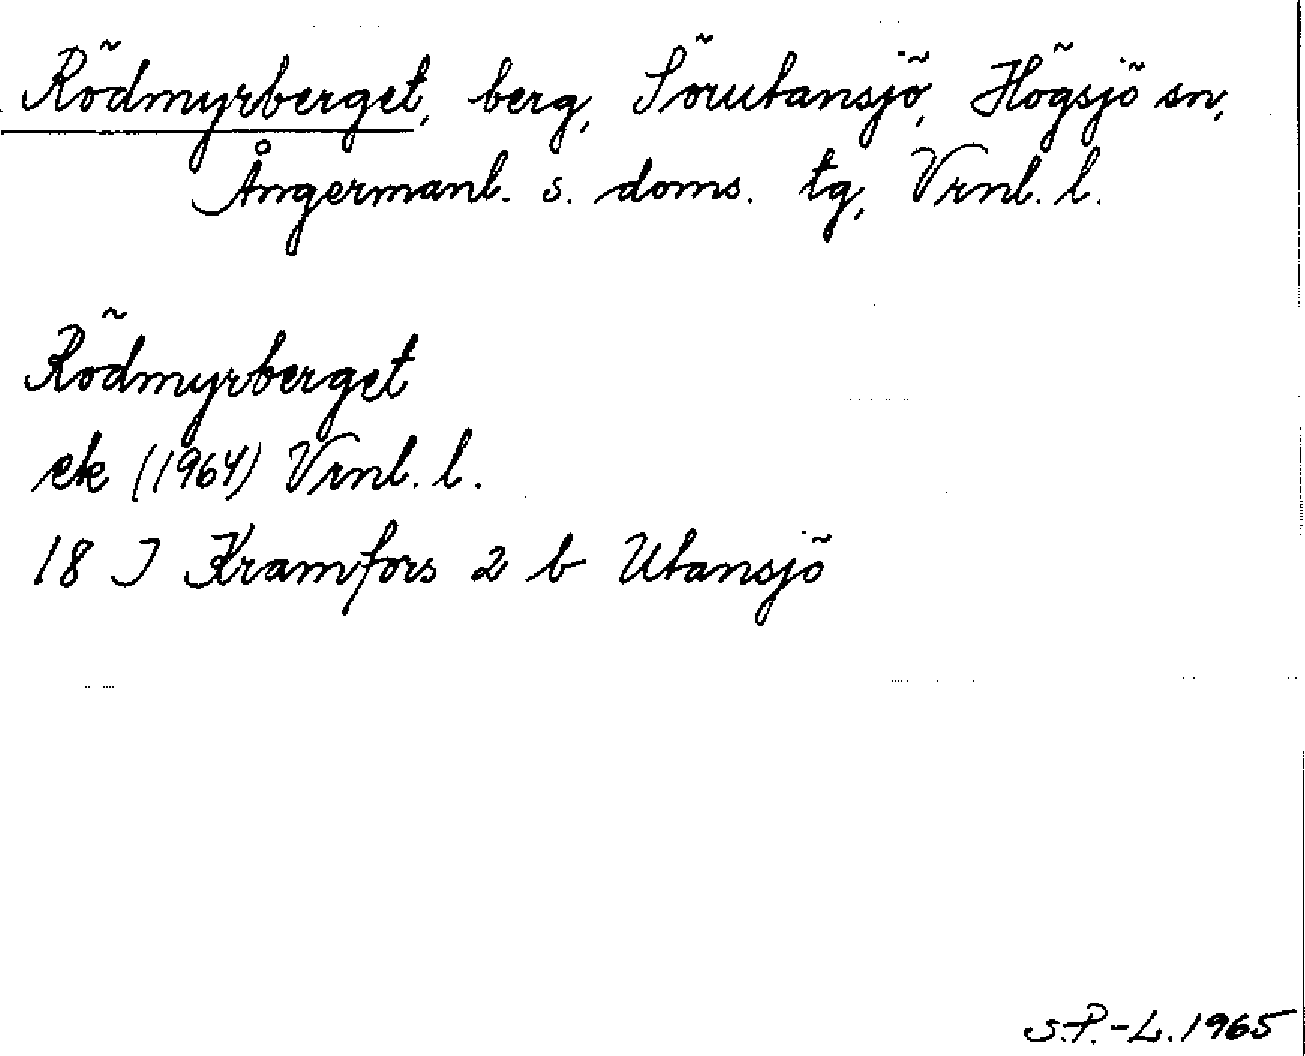 Rödmyrberget, berg, Sörutansjö, Högsjö sn,
Ångermanl. s. doms. tg, Vrnl. l.
Rödmyrberget
ek (1964) Vrnl. l.
18 J Kramfors 2 b Utansjö
S.P.-L. 1965